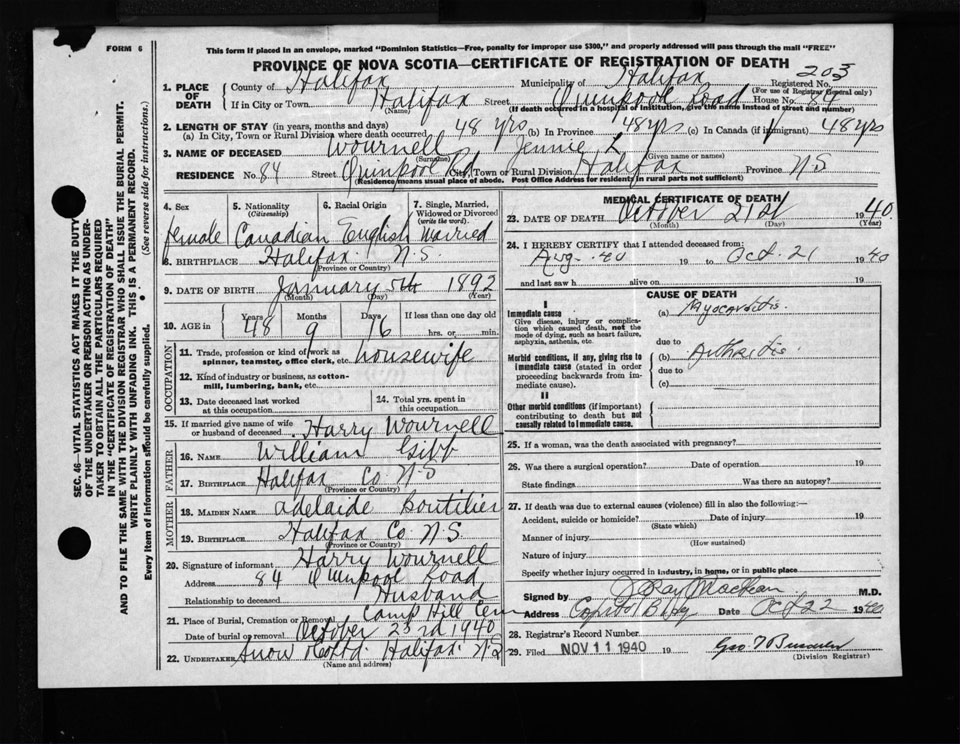 FORM 6
This form if placed in an envelope, marked "Dominion Statistics—Free, penalty for improper use $300," and properly addressed will pass through the mail "FREE"
PROVINCE OF NOVA SCOTIA—CERTIFICATE OF REGISTRATION OF DEATH
1. PLACE OF DEATH
County of Halifax Municipality of Halifax Registered No. 203
(For use of Registrar General only)
If in City or Town Halifax Street Quinpool Road House No. 84
(Name) (If death occurred in a hospital of institution, give the name instead of street and number)
2. LENGTH OF STAY (in years, months and days)
(a) In City, Town or Rural Division where death occurred 48 yrs (b) In Province 48 yrs (c) In Canada (if immigrant) 48 yrs
3. NAME OF DECEASED Wournell Jennie L
(Surname) (Given name or names)
RESIDENCE No. 84 Street Quinpool Rd City, Town or Rural Division Halifax Province N S
(Residence means usual place of abode. Post Office Address for residents in rural parts not sufficient)
4. Sex 5. Nationality (Citizenship) 6. Racial Origin 7. Single, Married, Widowed or Divorced (write the word)
female Canadian English Married
8. BIRTHPLACE Halifax N.S.
(Province or Country)
9. DATE OF BIRTH January 5th 1892
(Month) (Day) (Year)
10. AGE in Years Months Days If less than one day
48 9 16 hrs. or min.
OCCUPATION
11. Trade, profession or kind of work as spinner, teamster, office clerk, etc. housewife
12. Kind of industry or business, as cotton-mill, lumbering, bank, etc.
13. Date deceased last worked at this occupation
14. Total yrs. spent in this occupation
15. If married give name of wife or husband of deceased Harry Wournell
FATHER
16. NAME William
17. BIRTHPLACE Halifax Co N-S
(Province or Country)
MOTHER
18. MAIDEN NAME Adelaide Boutilier
19. BIRTHPLACE Halifax Co N.S.
(Province or Country)
20. Signature of informant Harry Wournell
Address 84 Quinpool Road
Relationship to deceased Husband
21. Place of Burial, Cremation or Removal Camp Hill Cem
Date of burial or removal October 23rd 1940
22. UNDERTAKER Snow & Co Ltd Halifax N S
(Name and address)
MEDICAL CERTIFICATE OF DEATH
23. DATE OF DEATH October 21st 1940
(Month) (Day) (Year)
24. I HEREBY CERTIFY that I attended deceased from:
Aug. 40 19 to Oct. 21 1940
and last saw h alive on 19
CAUSE OF DEATH
I
Immediate cause
Give disease, injury or complication which caused death, not the mode of dying, such as heart failure, asphyxia, asthenia, etc.
(a) Myocarditis
due to
Morbid conditions, if any, giving rise to immediate cause (stated in order proceeding backwards from immediate cause).
(b) Arthritis
due to
(c)
II
Other morbid conditions (if important) contributing to death but not causally related to immediate cause.
25. If a woman, was the death associated with pregnancy?
26. Was there a surgical operation? Date of operation 19
State findings Was there an autopsy?
27. If death was due to external causes (violence) fill in also the following:—
Accident, suicide or homicide? Date of injury 19
(State which)
Manner of injury
(How sustained)
Nature of injury
Specify whether injury occurred in industry, in home, or in public place
Signed by M.D.
Address Capitol Bldg Date Oct 22 1940
28. Registrar's Record Number
29. Filed NOV 11 1940 19
(Division Registrar)
SEC. 46—VITAL STATISTICS ACT MAKES IT THE DUTY
OF THE UNDERTAKER OR PERSON ACTING AS UNDER-
TAKER TO OBTAIN ALL THE PARTICULARS REQUIRED
IN THE "CERTIFICATE OF REGISTRATION OF DEATH"
AND TO FILE THE SAME WITH THE DIVISION REGISTRAR WHO SHALL ISSUE THE BURIAL PERMIT.
WRITE PLAINLY WITH UNFADING INK. THIS IS A PERMANENT RECORD.
Every item of information should be carefully supplied. (See reverse side for instructions.)